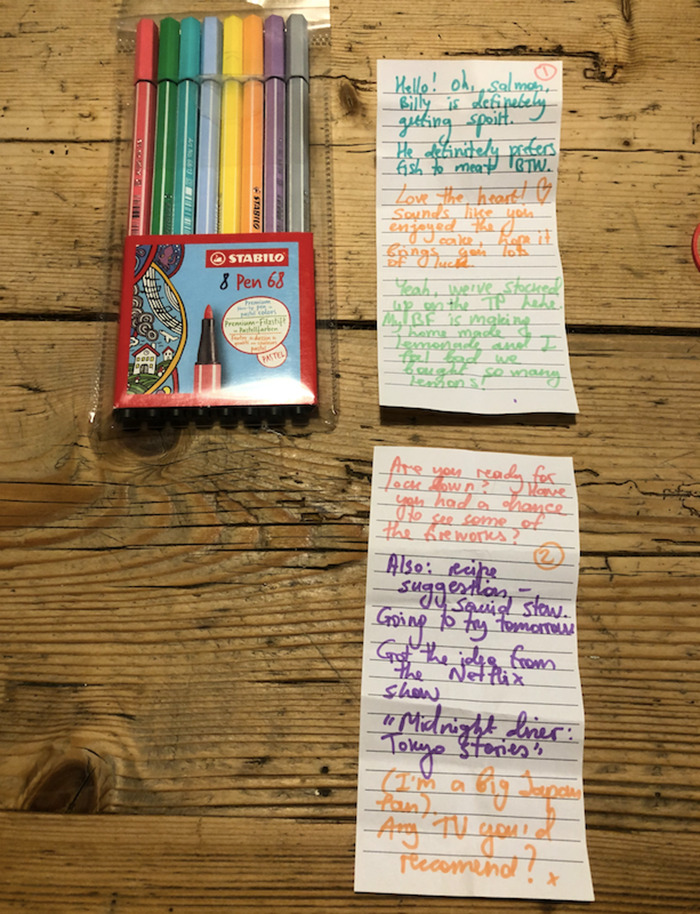 STABILO
8 Pen 68
Premium
fibre-tip pen in
pastel colors
Premium-Filzstift
in Pastellfarben
PASTEL
STABILO
1
Hello! Oh, salmon,
Billy is definetely
getting spoilt.
He definitely prefers
fish to meat BTW.
Love the heart! ♡
Sounds like you
enjoyed the
cake, hope it
brings you lots
of luck.
Yeah, we've stocked
up on the TP here.
My BF is making
home made
lemonade and I
feel bad we
bought so many
lemons!
Are you ready for
lock down? Have
you had a chance
to see some of
the fireworks?
2
Also: recipe
suggestion –
squid stew.
Going to try tomorrow
Got the idea from
the Netflix
show
"Midnight diner:
Tokyo stories"
(I'm a big Japan
fan).
Any TV you'd
reccomend? x